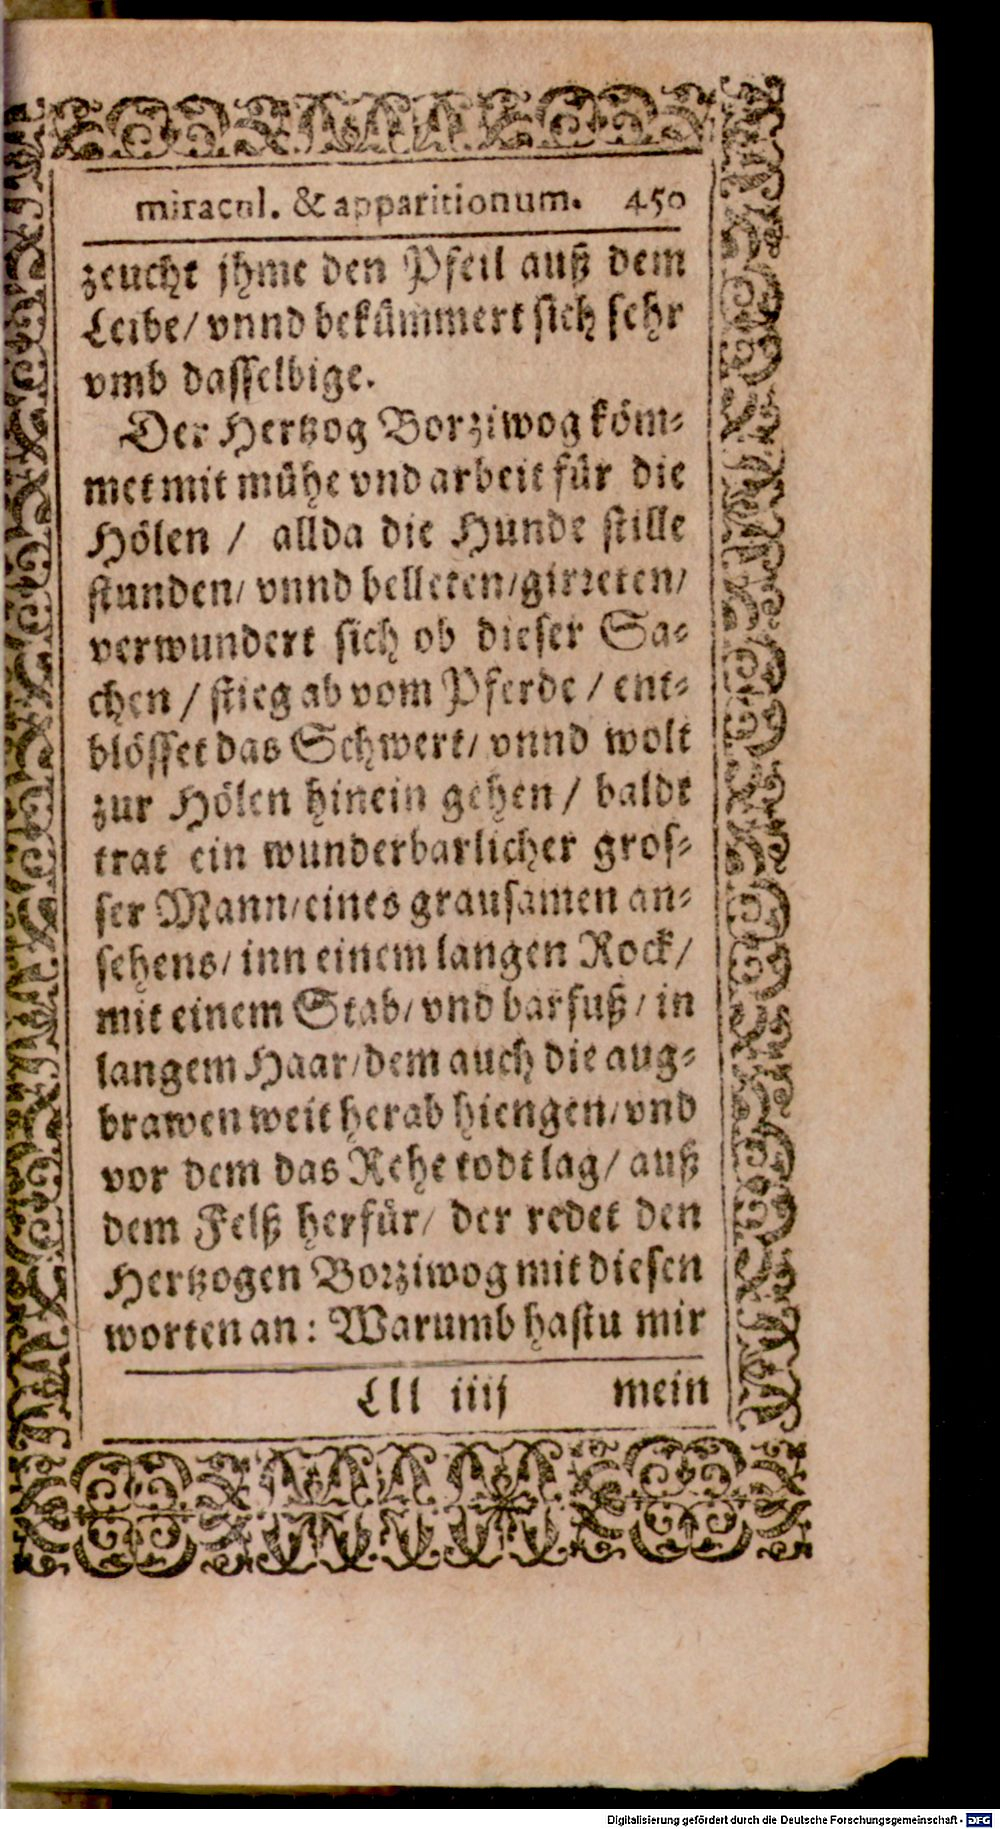 miracul. & apparitionum. 450
zeucht jhme den Pfeil auß dem
Leibe/ vnnd bekümmert sich sehr
vmb dasselbige.
Der Hertzog Borziwog köm⸗
met mit mühe vnd arbeit für die
Hölen / allda die Hunde stille
stunden/ vnnd belleten/girreten/
verwundert sich ob dieser Sa⸗
chen / stieg ab vom Pferde / ent⸗
blösset das Schwert/ vnnd wolt
zur Hölen hinein gehen / baldt
trat ein wunderbarlicher gros⸗
ser Mann/eines grausamen an⸗
sehens/ inn einem langen Rock/
mit einem Stab/ vnd barfuß / in
langem Haar/dem auch die aug⸗
brawen weit herab hiengen/ vnd
vor dem das Rehe todt lag/ auß
dem Felß herfür/ der redet den
Hertzogen Borziwog mit diesen
worten an: Warumb hastu mir
Lll iiij mein
Digitalisierung gefördert durch die Deutsche Forschungsgemeinschaft - DFG